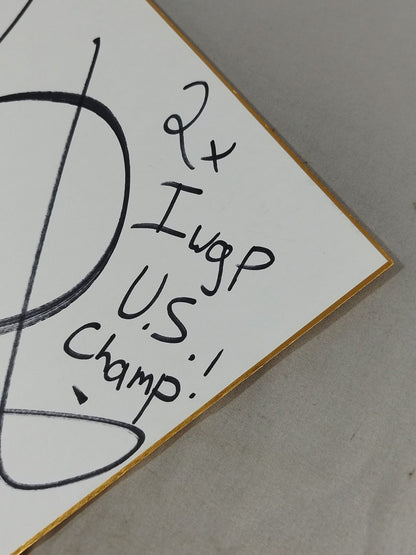 2x
Iwgp
U.S.
Champ!!